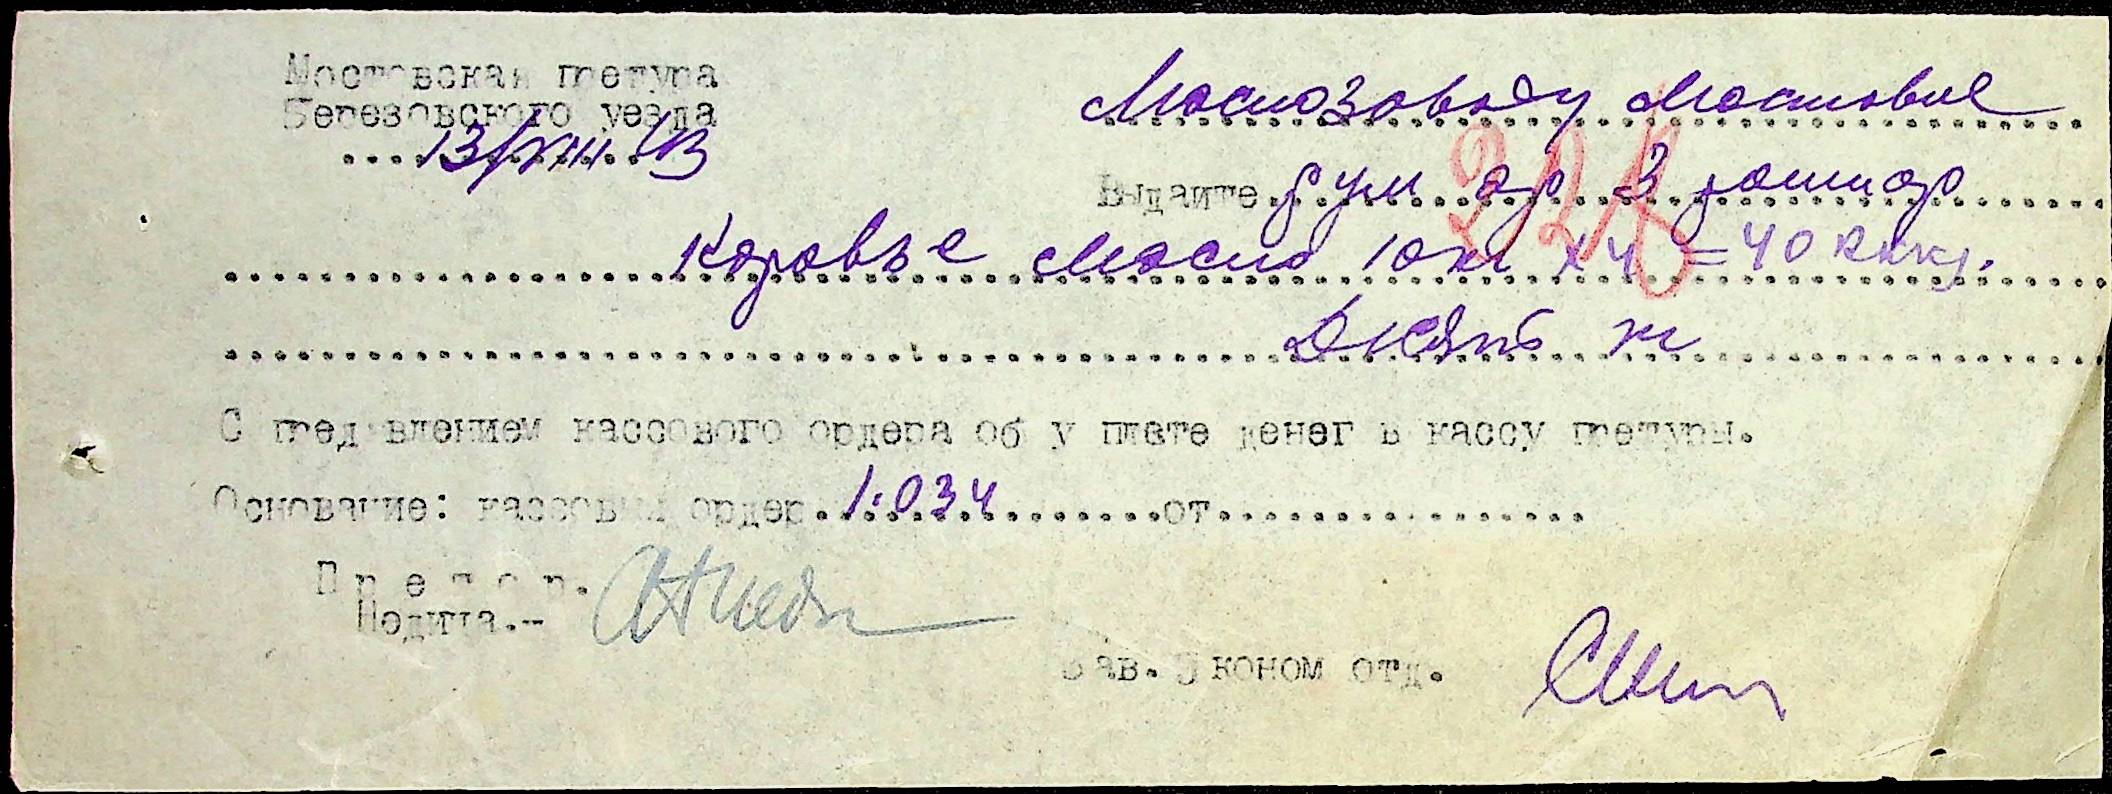 Мостовская претура
Березовского уезда
13/VIII 43
Маслозаводу Мостовое
Выдайте рум. ар 3 роши ор
Коровье масло 10 кг х 4 = 40 ркку.
Десять кг
С пред влением кассового ордера об у плате денег в кассу претуры.
Основание: кассовый ордер 1.034 от
Претор.
Недица.-
Зав. Эконом отд.